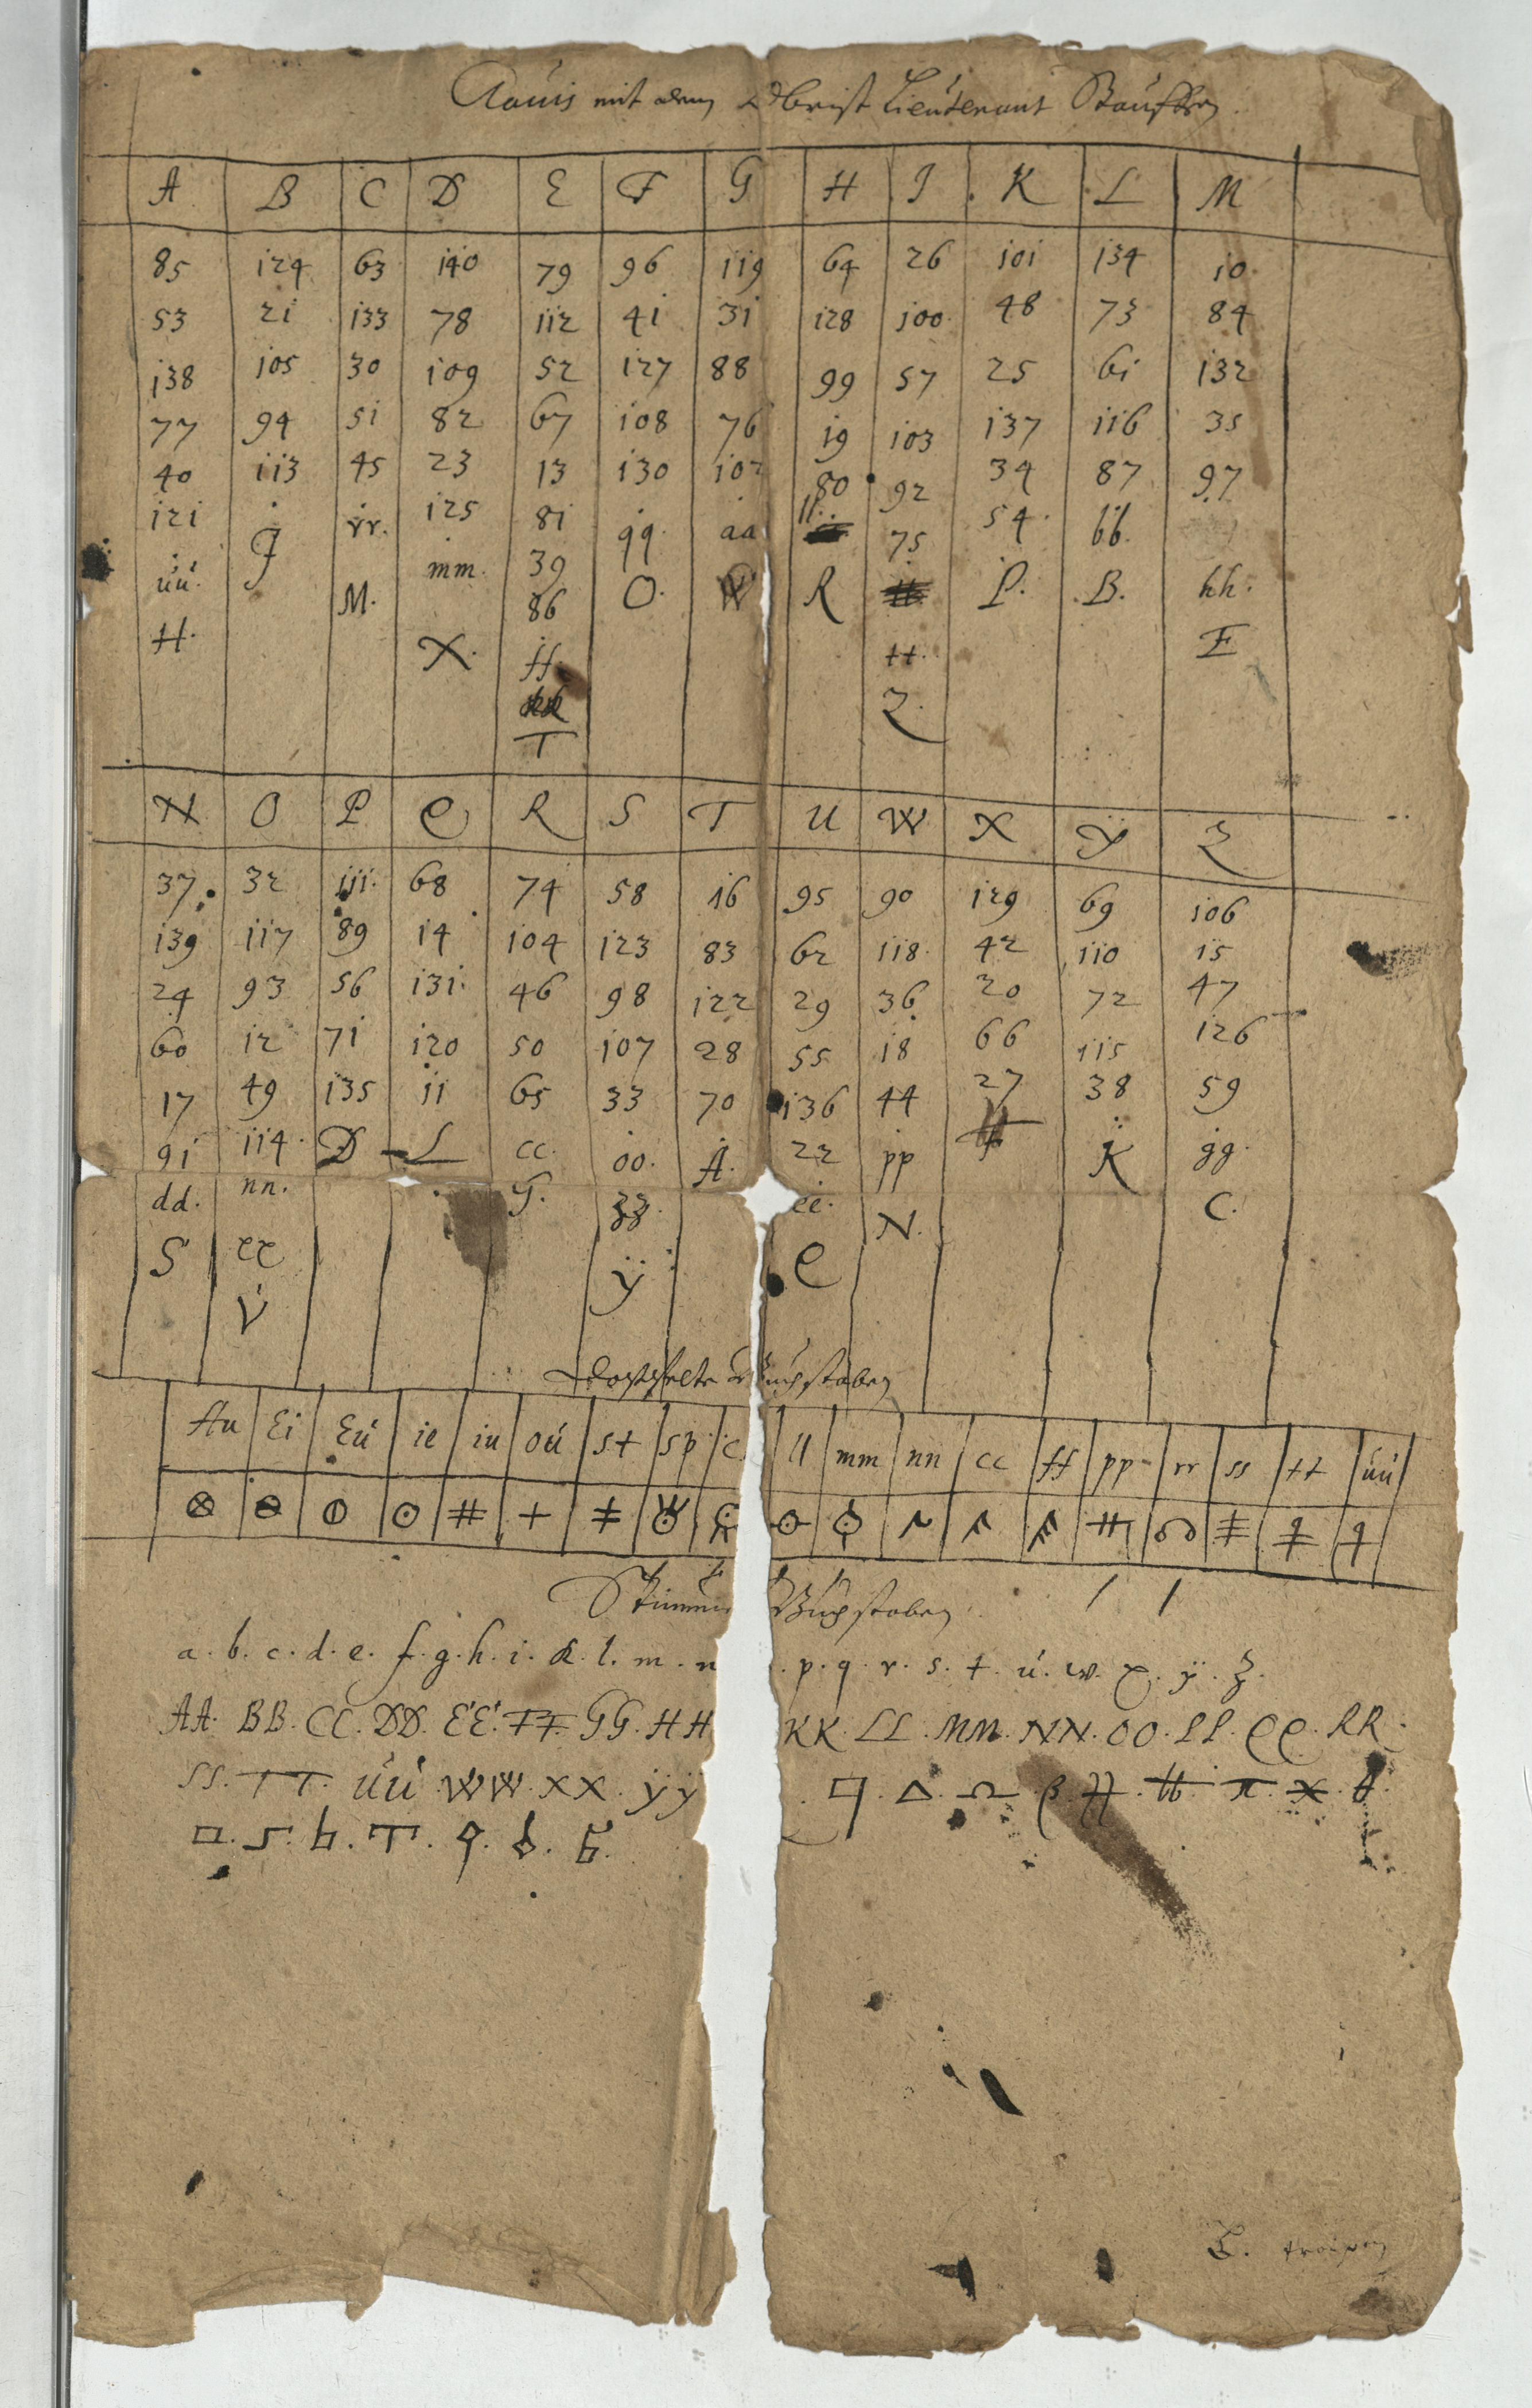 Clauis mit dem Obrist Lieutenant
A B C D E F G H I K L M
85 124 63 140 79 96 119 64 26 101 134 10
53 21 133 78 112 41 31 128 100 48 73 84
138 105 30 109 52 127 88 99 57 25 61 132
77 94 51 82 67 108 76 19 103 137 116 35
40 113 45 23 13 130 102 80 92 34 87 97
121 J rr. 125 81 qq. aa ll. 75 54 bb.
úú. M. mm. 39 O. W R P. B. hh.
H. X. 86 tt. F
ff. Z.
T
N O P Q R S T U W X Ÿ Z
37 32 111 68 74 58 16 95 90 129 69 106
139 117 89 14 104 123 83 62 118 42 110 15
24 93 56 131 46 98 122 29 36 20 72 47
60 12 71 120 50 107 28 55 18 66 115 126
17 49 135 11 65 33 70 136 44 27 38 59
91 114 D L cc. oo. A. 22 pp K gg.
dd. nn. G. zz. ee. N. C.
S ÿ Q
V
doppelte Buchstaben
Au Ei Eú ie iu oú st sp c ll mm nn cc ff pp rr ss tt úú
⊗ ⊖ ⦶ ⊙ # + ǂ
Stumme Buchstaben
a. b. c. d. e. f. g. h. i. k. l. m. n . p. q. r. s. t. ú. w. x. ÿ. z.
AA. BB. CC. DD. EE. FF. GG. HH KK. LL. MM. NN. OO. PP. QQ. RR.
SS. TT. úú WW. XX. ÿÿ Δ. Ω. β. π.